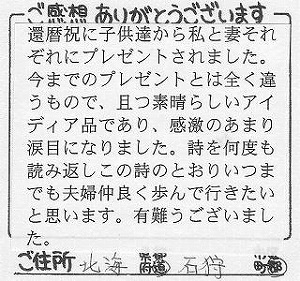 ご感想 ありがとうございます
還暦祝に子供達から私と妻それ
ぞれにプレゼントされました。
今までのプレゼントとは全く違
うもので、且つ素晴らしいアイ
ディア品であり、感激のあまり
涙目になりました。詩を何度も
読み返しこの詩のとおりいつま
でも夫婦仲良く歩んで行きたい
と思います。有難うございまし
た。
ご住所 北海 石狩